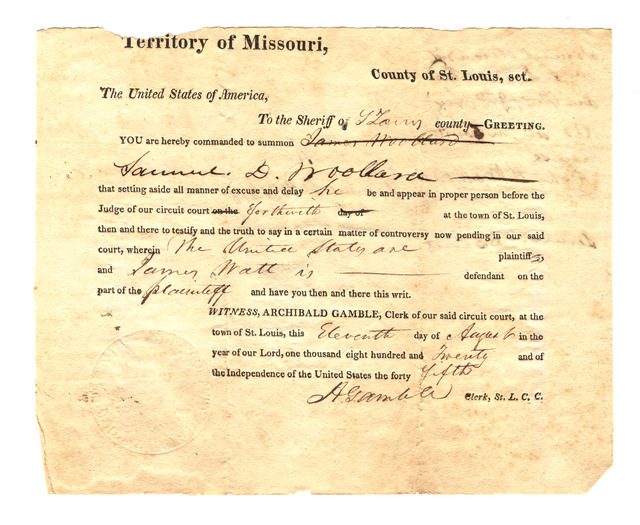 Territory of Missouri,
County of St. Louis, sct.
The United States of America,
To the Sheriff of St Louis county—GREETING.
YOU are hereby commanded to summon James Woollard
Samuel D. Woollard
that setting aside all manner of excuse and delay he be and appear in proper person before the
Judge of our circuit court on the forthwith day of at the town of St. Louis,
then and there to testify and the truth to say in a certain matter of controversy now pending in our said
court, wherein The United States are plaintiffs
and James Watt is defendant on the
part of the plaintiff and have you then and there this writ.
WITNESS, ARCHIBALD GAMBLE, Clerk of our said circuit court, at the
town of St. Louis, this Eleventh day of August in the
year of our Lord, one thousand eight hundred and Twenty and of
the Independence of the United States the forty fifth
A Gamble Clerk, St. L. C. C.